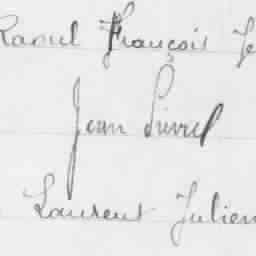 Raoul François Je
Jean Pierre
Laurent Julien